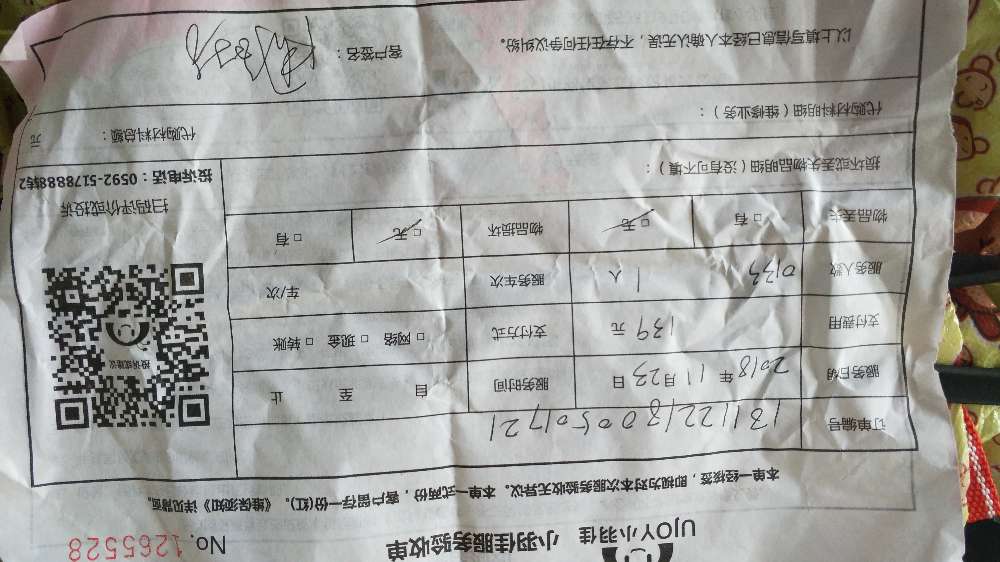 UJOY小羽佳 小羽佳服务验收单 No. 1265528
本单一经接签，即视为对本次服务验收无异议。本单一式两份，客户留存一份(红)。《维保须知》详见背面。
订单编号 1311221800501721
服务日期 2018年11月23日 服务时间 自 至 止
支付费用 139元 支付方式 □网络 □现金 □转账
服务人数 0133 1人 服务车次 车/次
物品丢失 □有 □无 物品损坏 □无 □有
投诉或建议
扫码评价或投诉
投诉电话：0592-5178888转2
损坏或丢失物品明细（没有可不填）：
代购材料明细（维修业务）： 代购材料总额： 元
以上填写信息已经本人确认无误，不存在任何争议纠纷。 客户签名：